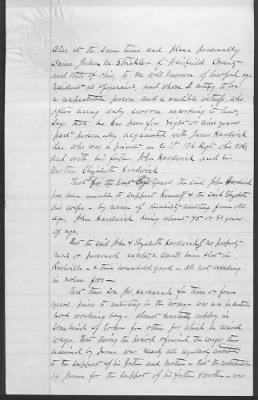 Also at the same time and place personally
came John M. Strickler of Fairfield County
and State of Ohio, to me well known of lawful age
resident as aforesaid, and whom I certify to be
a respectable person and a credible witness, who
after being duly sworn according to law
says that he has been for eight or nine years
past personally acquainted with James Hardwick
dec. who was a private in Co. 126 Regt Ohio Vols,
and with his father John Hardwick and his
Mother Elizabeth Hardwick
That for the past years the said John Hardwick
has been unable to support himself & the said Elizabeth
his wife by reason of disability resulting from old
age, John Hardwick being about 75 or 80 years
of age.
That the said John & Elizabeth Hardwick of no property
real or personal except a small home & lot in
Rushville & their household goods all not exceeding
in value $50
That their son Jas. Hardwick for three or four
years prior to enlisting in the army was an industrious
hard working boy constantly
some kind of labor for others for which he earned
wages, that during the period referred to wages thus
received by James was nearly all
to the support of his father and mother that the contribution
by James for the support of his father & mother was